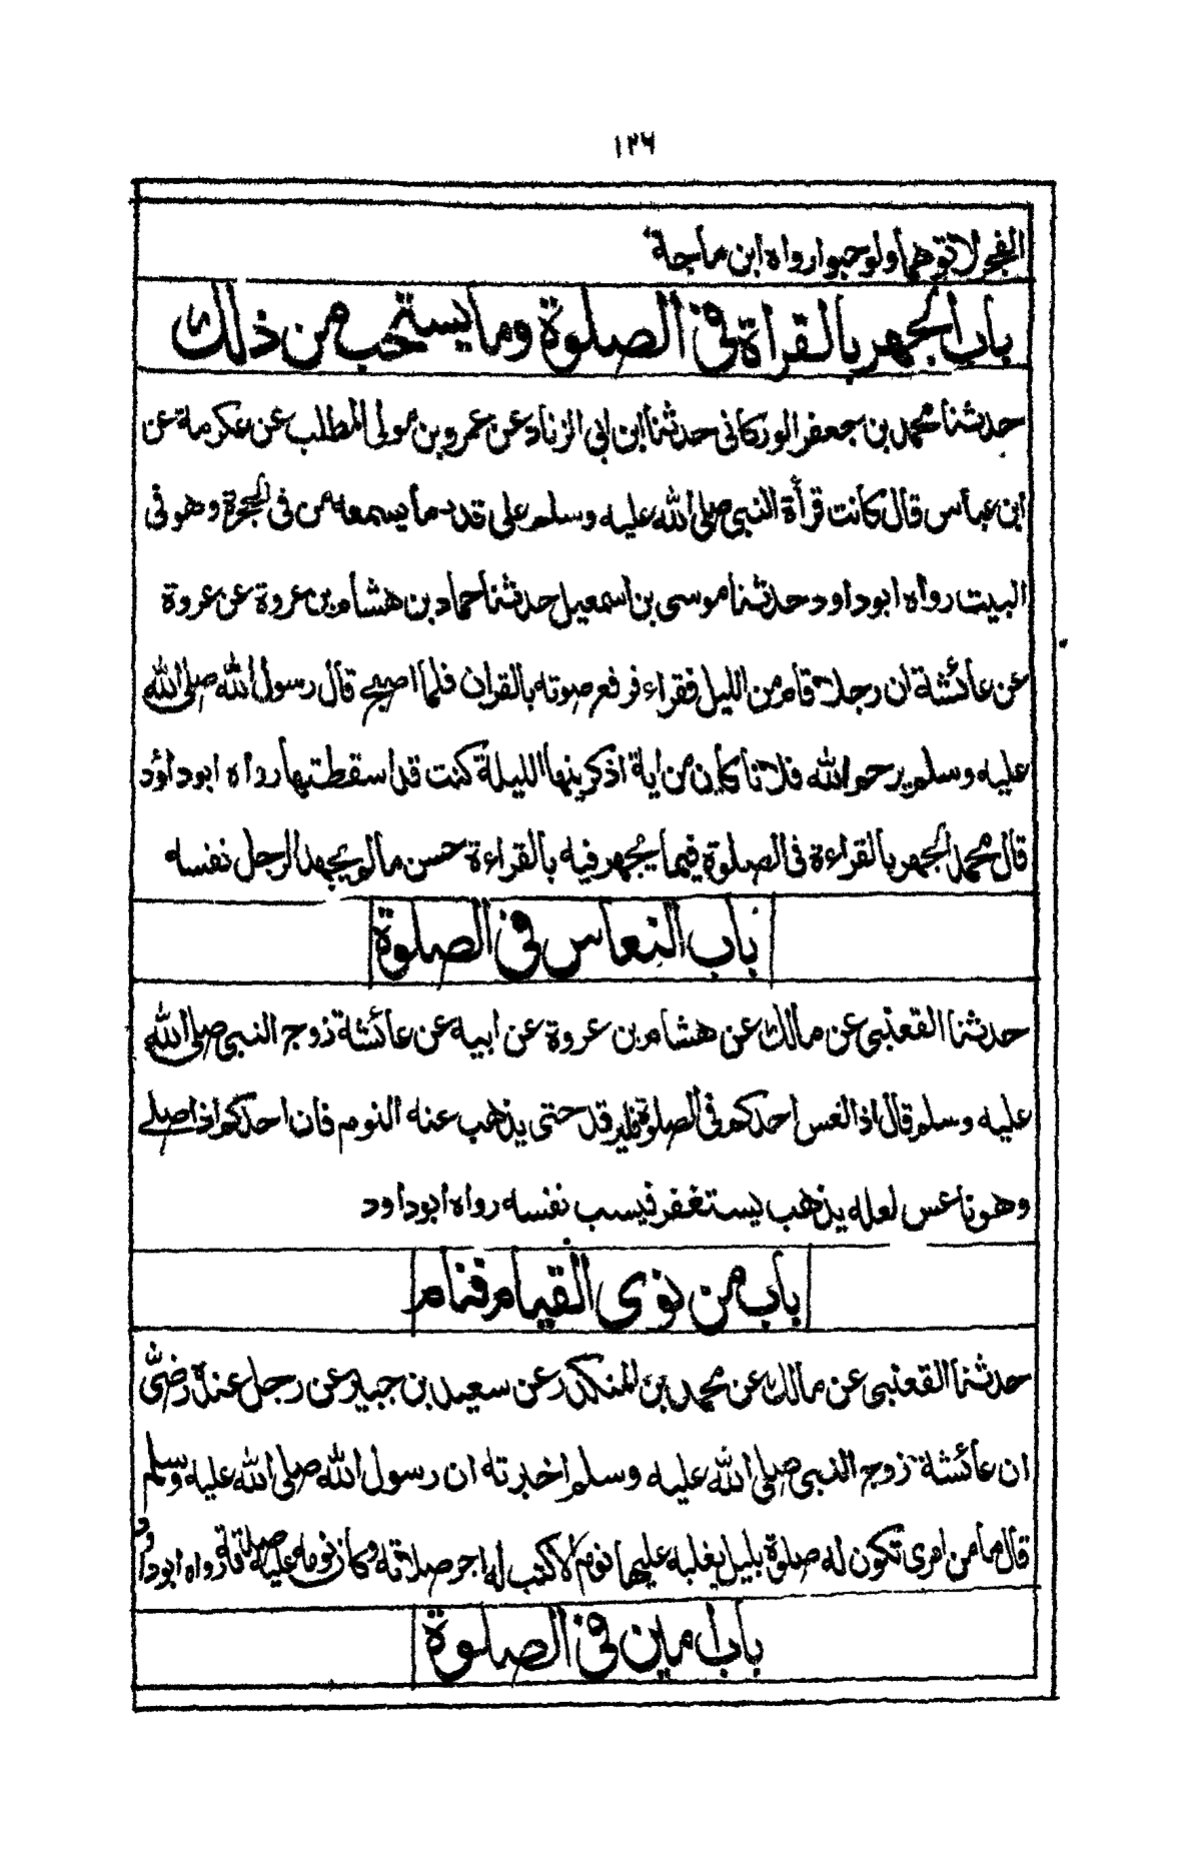 ١٢٦
الفجر لاتوهما ولو حبوا رواه ابن ماجة
باب الجهر بالقراة فى الصلوة وما يستحب من ذلك
حدثنا محمد بن جعفر الوركانى حدثنا ابن ابى الزناد عن عمرو بن مولى المطلب عن عكرمة عن
ابن عباس قال كانت قرأة النبى صلى الله عليه وسلم على قدر ما يسمعه من فى الحجرة وهو فى
البيت رواه ابوداود حدثنا موسى بن اسمعيل حدثنا حماد بن هشام بن عروة عن عروة
عن عائشة ان رجلا قام من الليل فقراء فرفع صوته بالقران فلما اصبح قال رسول الله صلى الله
عليه وسلم يرحم الله فلانا كاين من اية اذكرينها الليلة كنت قد اسقطتها رواه ابوداؤد
قال محمد الجهر بالقراءة فى الصلوة فيما يجهر فيه بالقراءة حسن مالم يجهد الرجل نفسه
باب النعاس فى الصلوة
حدثنا القعنبى عن مالك عن هشام بن عروة عن ابيه عن عائشة زوج النبى صلى الله
عليه وسلم قال اذا نعس احدكم فى الصلوة فليرقد حتى يذهب عنه النوم فان احدكم اذا صلے
وهو ناعس لعله يذهب يستغفر فيسب نفسه رواه ابوداود
باب من نوى القيام فنام
حدثنا القعنبى عن مالك عن محمد بن المنكدر عن سعيد بن جبير عن رجل عنده رضى
ان عائشة زوج النبى صلى الله عليه وسلم اخبرته ان رسول الله صلى الله عليه وسلم
قال ما من امرى تكون له صلوة بليل يغلبه عليها نوم الا كتب له اجر صلاته وكان نومه عليه صدقة رواه ابوداود
باب امين فى الصلوة